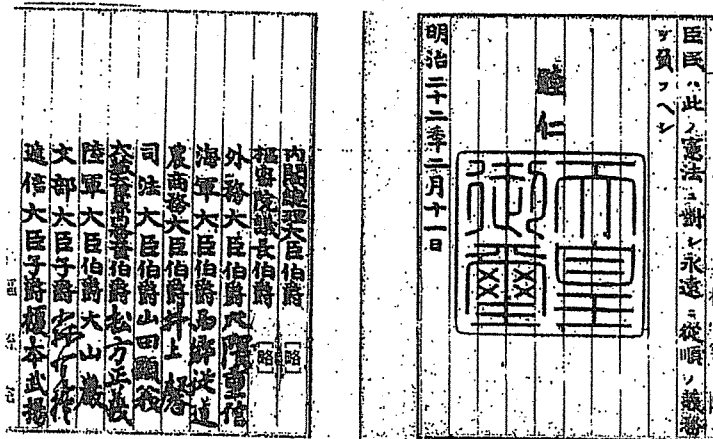 臣民ハ此ノ憲法ニ對シ永遠ニ從順ノ義務
ヲ負フヘシ
睦仁
天皇
御璽
明治二十二年二月十一日
内閣總理大臣伯爵[略]
樞密院議長伯爵[略]
外務大臣伯爵大隈重信
海軍大臣伯爵西鄉從道
農商務大臣伯爵井上馨
司法大臣伯爵山田顯義
大藏大臣兼内務大臣伯爵松方正義
陸軍大臣伯爵大山巖
文部大臣子爵森有禮
遞信大臣子爵榎本武揚